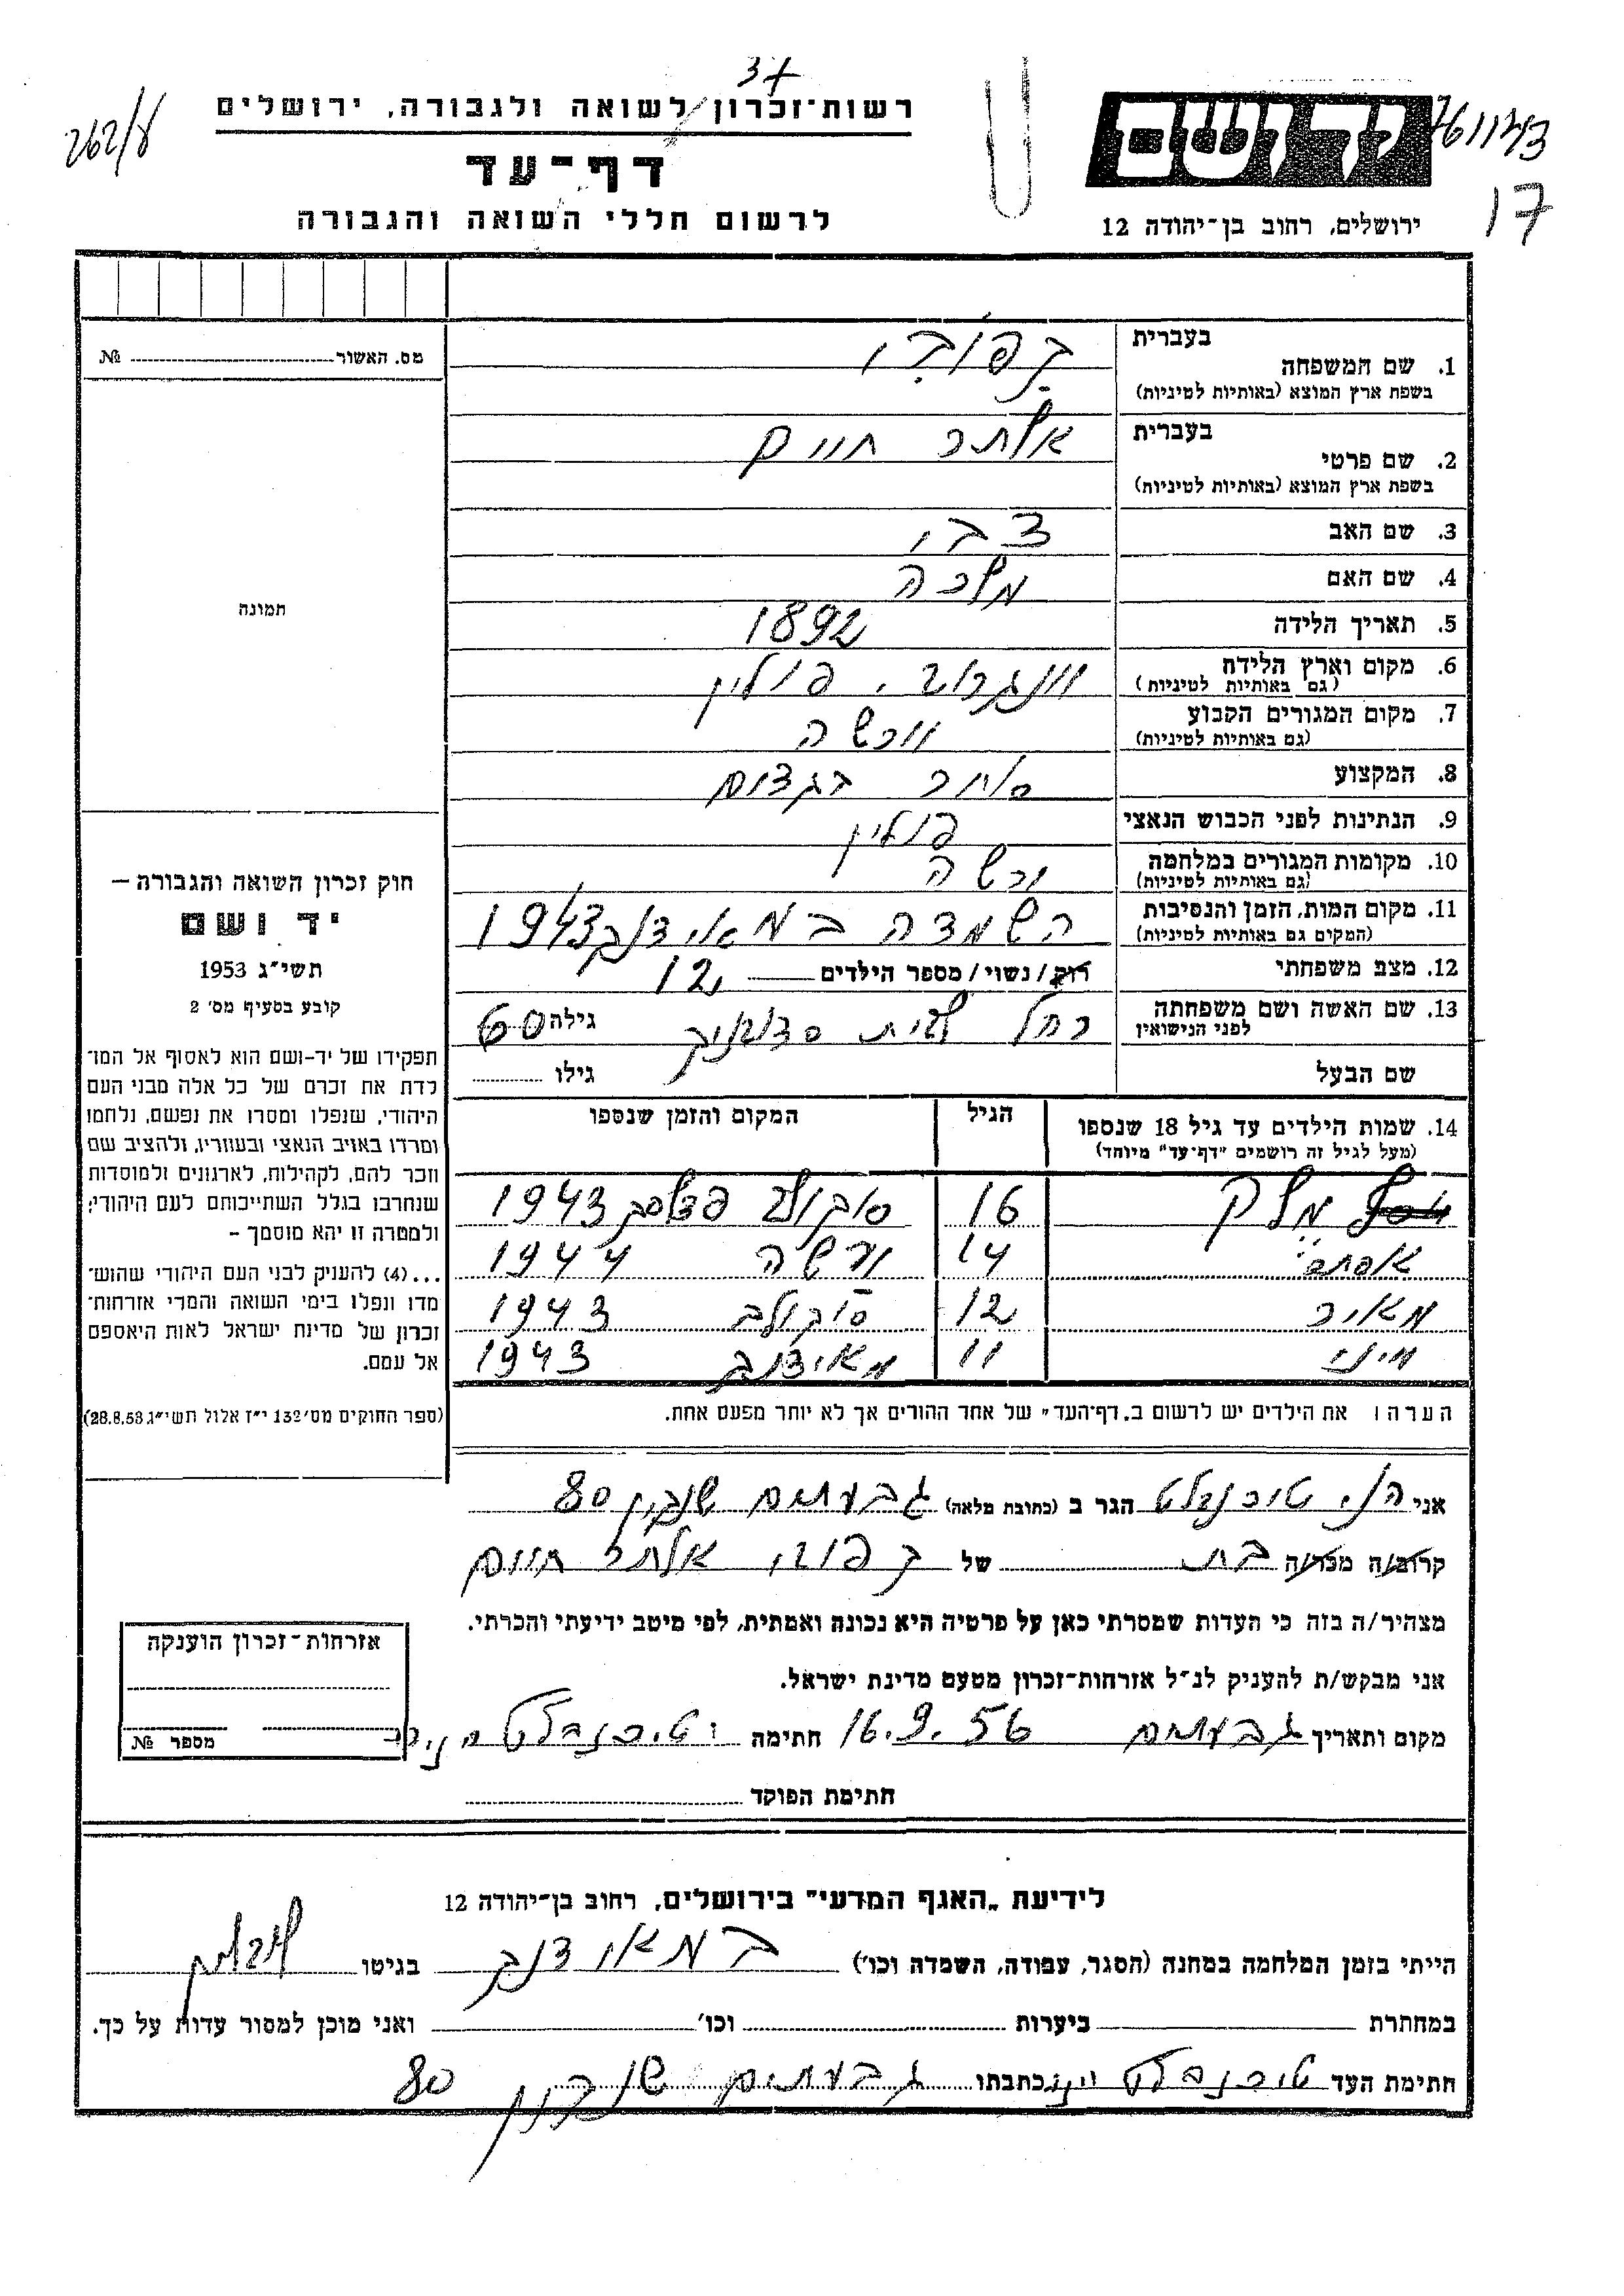 37
רשות־זכרון לשואה ולגבורה, ירושלים
דף־עד
לרשום חללי השואה והגבורה
262/
יד ושם
17
ירושלים, רחוב בן־יהודה 12
מס. האשור № 
תמונה
בעברית
1. שם המשפחה
בשפת ארץ המוצא (באותיות לטיניות)
בעברית
2. שם פרטי אלתר חיים
בשפת ארץ המוצא (באותיות לטיניות)
3. שם האב צבי
4. שם האם מלכה
5. תאריך הלידה 1892
6. מקום וארץ הלידה וונגרוב, פולין
(גם באותיות לטיניות)
7. מקום המגורים הקבוע וורשה
(גם באותיות לטיניות)
8. המקצוע סוחר
9. הנתינות לפני הכבוש הנאצי פולין
10. מקומות המגורים במלחמה ורשה
(גם באותיות לטיניות)
11. מקום המות, הזמן והנסיבות השמדה במאידנק 1943
(המקום גם באותיות לטיניות)
12. מצב משפחתי רוק / נשוי / מספר הילדים 12
13. שם האשה ושם משפחתה רחל לבית גילה 60
לפני הנישואין
שם הבעל גילו
14. שמות הילדים עד גיל 18 שנספו הגיל המקום והזמן שנספו
(מעל לגיל זה רושמים "דף־עד" מיוחד)
16 1943
אסתר 14 ורשה 1944
מאיר 12 סוקולוב 1943
11 מאידנק 1943
הערה: את הילדים יש לרשום ב„דף־העד" של אחד ההורים אך לא יותר מפעם אחת.
חוק זכרון השואה והגבורה —
יד ושם
תשי״ג 1953
קובע בסעיף מס׳ 2
תפקידו של יד-ושם הוא לאסוף אל המו־
לדת את זכרם של כל אלה מבני העם
היהודי, שנפלו ומסרו את נפשם, נלחמו
ומרדו באויב הנאצי ובעוזריו, ולהציב שם
וזכר להם, לקהילות, לארגונים ולמוסדות
שנחרבו בגלל השתייכותם לעם היהודי;
ולמטרה זו יהא מוסמך —
...(4) להעניק לבני העם היהודי שהוש־
מדו ונפלו בימי השואה והמרי אזרחות־
זכרון של מדינת ישראל לאות היאספם
אל עמם.
(ספר החוקים מס׳ 132 י״ז אלול תשי״ג 28.8.53)
אני טירנבלט הגר ב (כתובת מלאה) גבעתיים שנקין 80
קרוב/ה מכר/ה בת של אלתר חיים
מצהיר/ה בזה כי העדות שמסרתי כאן על פרטיה היא נכונה ואמתית, לפי מיטב ידיעתי והכרתי.
אני מבקש/ת להעניק לנ״ל אזרחות־זכרון מטעם מדינת ישראל.
מקום ותאריך גבעתיים 16.9.56 חתימה טירנבלט
חתימת הפוקד
אזרחות־זכרון הוענקה
מספר №
לידיעת „האגף המדעי" בירושלים, רחוב בן־יהודה 12
הייתי בזמן המלחמה במחנה (הסגר, עבודה, השמדה וכו׳) במאידנק בגיטו
במחתרת ביערות וכו׳ ואני מוכן למסור עדות על כך.
חתימת העד טירנבלט כתבתו גבעתיים שנקין 80